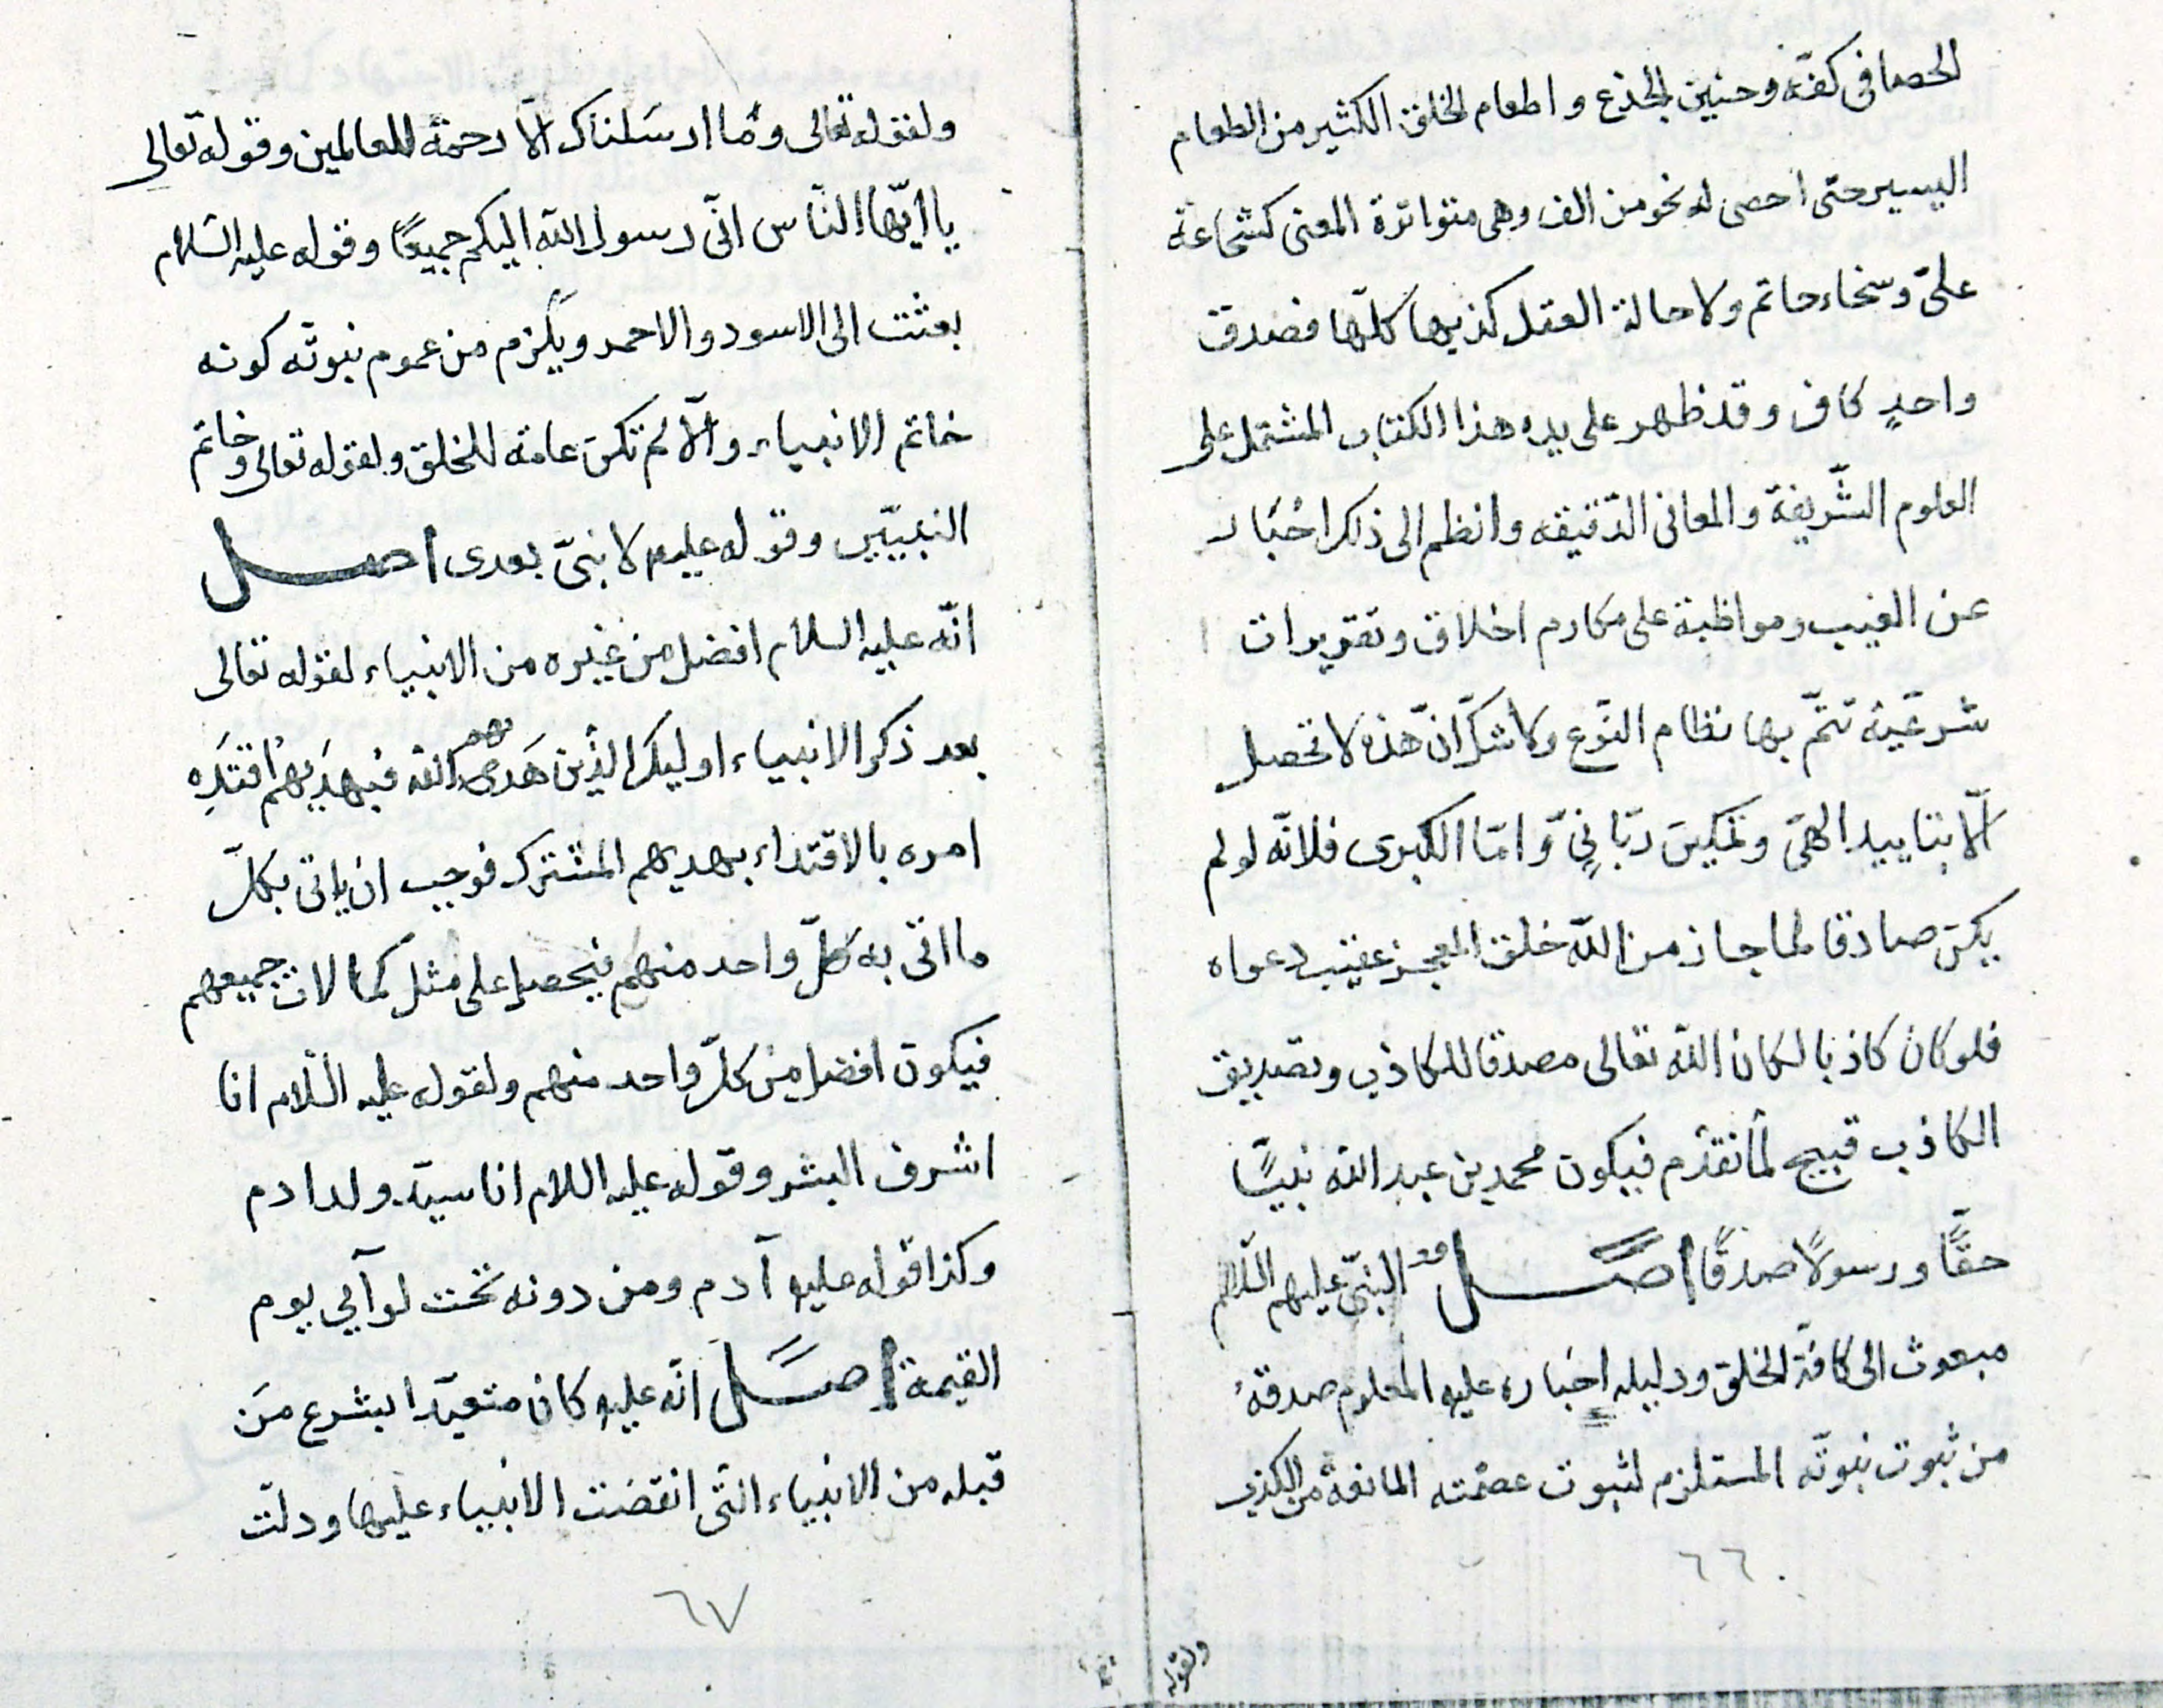 الحصا فى كفّه وحنين الجذع واطعام الخلق الكثير من الطعام
اليسير حتى احصى له نحو من الف وهى متواترة المعنى كشجاعة
علىّ وسخاء حاتم ولاحالة العقل كذبها كلّها فصدق
واحدٍ كاف وقد ظهر على يده هذا الكتاب المشتمل على
العلوم الشّريفة والمعانى الدّقيقه وانظم الى ذلك اخبار
عن الغيب ومواظبة على مكارم اخلاق وتقريرات
شرعيّة تتمّ بها نظام النّوع ولا شكّ انّ هذه لا تحصل
الّا بتاييد الهىّ وتمكين ربّانىّ وامّا الكبرى فلانّه لو لم
يكن صادقا لما جاز من اللّه خلق المعجز عقيب دعواه
فلو كان كاذبا لكان اللّه تعالى مصدقا للكاذب وتصديق
الكاذب قبيح لما تقدّم فيكون محمد بن عبد اللّه نبيًّا
حقًّا ورسولًا صدقًا اصل النبىّ عليهم السّلام
مبعوث الى كافة الخلق ودليله اخباره عليه المعلوم صدقه
من ثبوت نبوتّه المستلزم لثبوت عصمته المانعة من الكذب
٦٦
ولقوله
ولقوله تعالى وما ارسلناك الّا رحمة للعالمين وقوله تعالى
يا ايّها النّاس انّى رسول اللّه اليكم جميعًا وقوله عليه السّلام
بعثت الى الاسود والاحمر ويلزم من عموم نبوتّه كونه
خاتم الانبياء والّا لم تكن عامة للخلق ولقوله تعالى وخاتم
النبييّن وقوله عليه لا نبىّ بعدى اصل
انّه عليه السلام افضل من غيره من الانبياء لقوله تعالى
بعد ذكر الانبياء اوليك الذين هدى اللّه فبهديهم اقتده
امره بالاقتداء بهديهم المشترك فوجب ان ياتى بكلّ
ما اتى به كلّ واحد منهم فيحصل على مثل كمالات جميعهم
فيكون افضل من كلّ واحد منهم ولقوله عليه السّلام انا
اشرف البشر وقوله عليه اللام انا سيّد ولد ادم
وكذا قوله عليه آدم ومن دونه تحت لوآيى يوم
القيمة اصل انّه عليه كان متعبّدا بشرع من
قبله من الانبياء التى انقضت الانبياء عليها ودلّت
٦٧